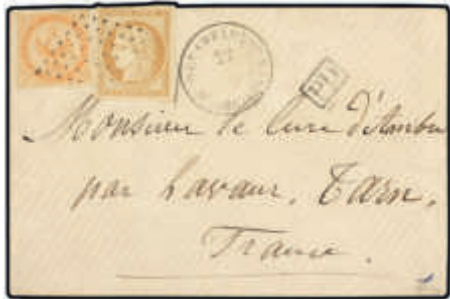 PD
Monsieur le Curé d'Ambre
par Lavaur. Tarn.
France.